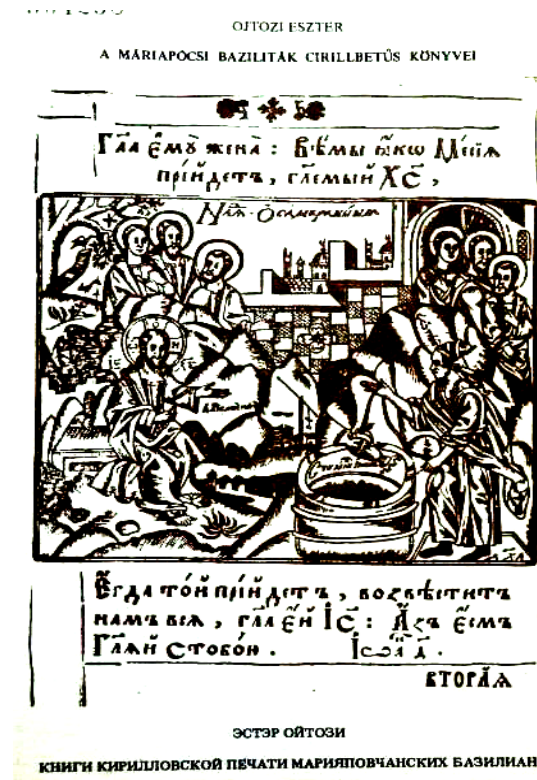 OJTOZI ESZTER
A MÁRIAPÓCSI BAZILITÁK CIRILLBETŰS KÖNYVEI
Гл҃а є҆мꙋ̀ жена̀ : Вѣ́мы ꙗ҆́кѡ Месі́а
прїи́детъ , гл҃емый Хс҃ ,
Є҆гда̀ то́й прїи́детъ , возвѣсти́тъ
намъ всѧ̀ , гл҃а є҆́й І҆с҃ : А҆́зъ є҆́смъ
Гл҃ѧй с тобо́ю .
ВТОРА́Ѧ
ЭСТЭР ОЙТОЗИ
КНИГИ КИРИЛЛОВСКОЙ ПЕЧАТИ МАРИЯПОВЧАНСКИХ БАЗИЛИАН